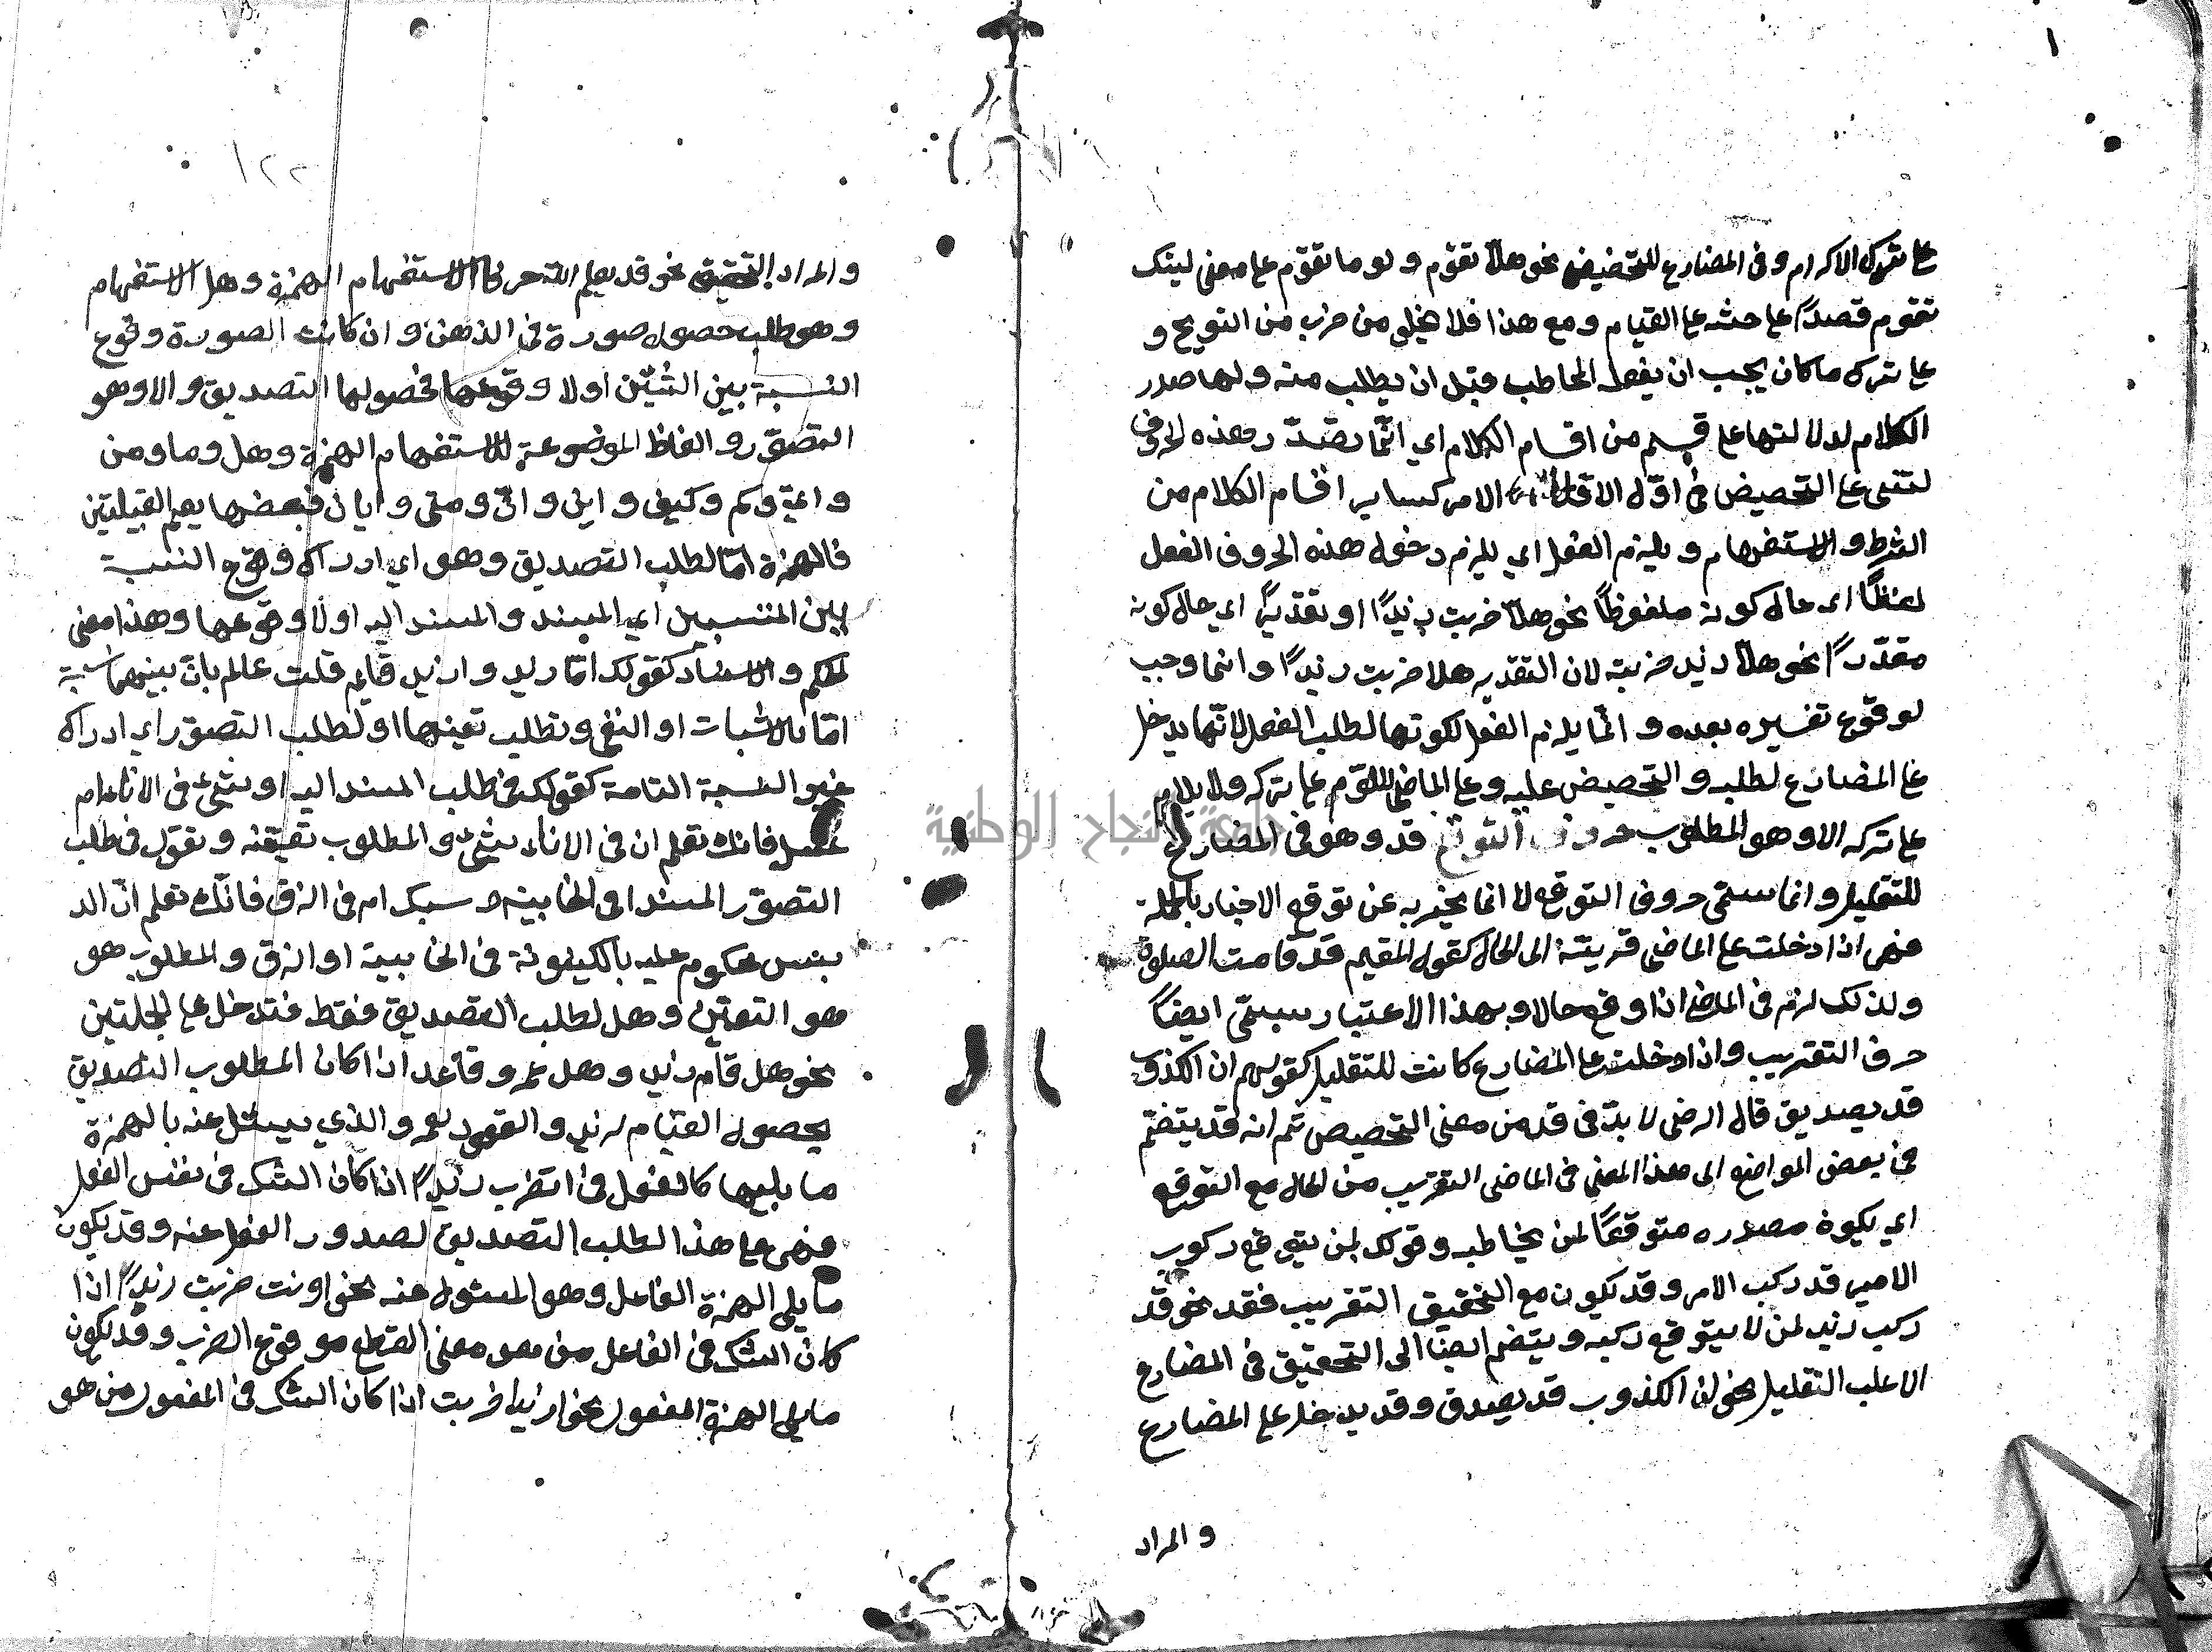 ١
على ترك الاكرام وفى المضارع للتحضيض نحو هلا تقوم ولوما تقوم على معنى ليتك
تقوم قصدًا على حثه على القيام ومع هذا فلا يخلى من ضرب من التوبيخ و
على ترك ما كان يجب ان يفعله المخاطب قبل ان يطلب منه ولها صدر
الكلام لدلالتها على قسم من اقسام الكلام اي انما تصدّر هذه الحروف
على التحضيض فى اول الامر كساير اقسام الكلام من
الشرط والاستفهام ويلزم الفعل اي يلزم دخول هذه الحروف الفعل
لفظًا اى حال كونه ملفوظًا نحو هلا ضربت زيدًا او تقديرًا اي حال كونه
مقدّرًا نحو هلا زيد ضربته لان التقدير هلا ضربت زيدًا وانما وجب
لوقوع تفسيره بعده وانما يلزم الفعل لكونها لطلب الفعل لانها يدخل
على المضارع لطلبه والتحضيض عليه وعلى الماضي للوم على تركه ولا يلام
على تركه الا وهو المطلوب حروف التوقع قد وهو فى المضارع
للتقليل وانما سمى حروف التوقع لا انما يخبر به عن توقع الاخبار بالجملة
فهى اذا دخلت على الماضى قربته الى الحال كقول المقيم قد قامت الصلوة
ولذلك لزم فى الماضى اذا وقع حالا وبهذا الاعتبار سمى ايضًا
حرف التقريب واذا دخلت على المضارع كانت للتقليل كقولهم ان الكذوب
قد يصديق قال الرضى لا بدّ فى قد من معنى التحصيص ثم انه قد يتضم
فى بعض المواضع الى هذا المعنى فى الماضى التقريب من الحال مع التوقع
اي يكون مصدره متوقعًا لمن يخاطبه وقولك لمن يتوقع ركوب
الامير قد ركب الامر وقد يكون مع التحقيق التقريب فقد نحو قد
ركب زيد لمن لا يتوقع ركبه ويتضم ايضا الى التحقيق فى المضارع
الاغلب التقليل نحو ان الكذوب قد يصدق وقد يدخل على المضارع
والمراد
١٢٢
والمراد التحقيق نحو قد يعلم الله حرفا الاستفهام الهمزة وهل الاستفهام
وهو طلب حصول صورة فى الذهن وان كانت الصورة وقوع
النسبة بين الشيئين اولا وقوعها فحصولها التصديق والا وهو
التصوّر والفاظ الموضوعة للاستفهام الهمزة وهل وما ومن
واي وكم وكيف واين وانّى ومتى وايان فبعضها يعم القبيلتين
فالهمزة امّا لطلب التصديق وهو اي ادراك وقوع النسبة
بين المنتسبين اي المسند والمسند اليه اولا وقوعها وهذا معنى
الحكم والاسناد كقولك اقام زيد وازيد قايم قلت عالم بانّ بينهما نسبة
امّا بالاثبات او النفى وتطلب تعينها او لطلب التصوّر اي ادراك
غير النسبة التامة كقولك فى طلب المسند اليه اوشىء فى الاناء ام
عسل فانك تعلم ان فى الاناء شىء والمطلوب تعيّنه وتقول فى طلب
التصوّر المسند افى الخابية دبسك ام فى الزق فانّك تعلم انّ الد
بس محكوم عليه بالكينونة فى الخابية او الزق والمطلوب هو
هو التعيّن وهل لطلب التصديق فقط فتدخل على الجملتين
نحو هل قام زيد وهل عمرو قاعد اذا كان المطلوب التصديق
بحصول القيام لزيد والقعود لعمرو والذي يسئل عنه بالهمزة
ما يليها كالفعل فى اتضرب زيدًا اذا كان الشك فى نفس الفعل
فهى على هذا لطلب التصديق لصدور الفعل عنه وقد يكون
ما يلى الهمزة الفاعل وهو المسئول عنه نحو اونت ضربت زيدًا اذا
كان الشك فى الفاعل من هو معنى القطع هو وقوع الضرب وقد يكون
ما يلى الهمزة المفعول نحو ازيدا ضربت اذا كان الشك فى المفعول من هو
جامعة النجاح الوطنية